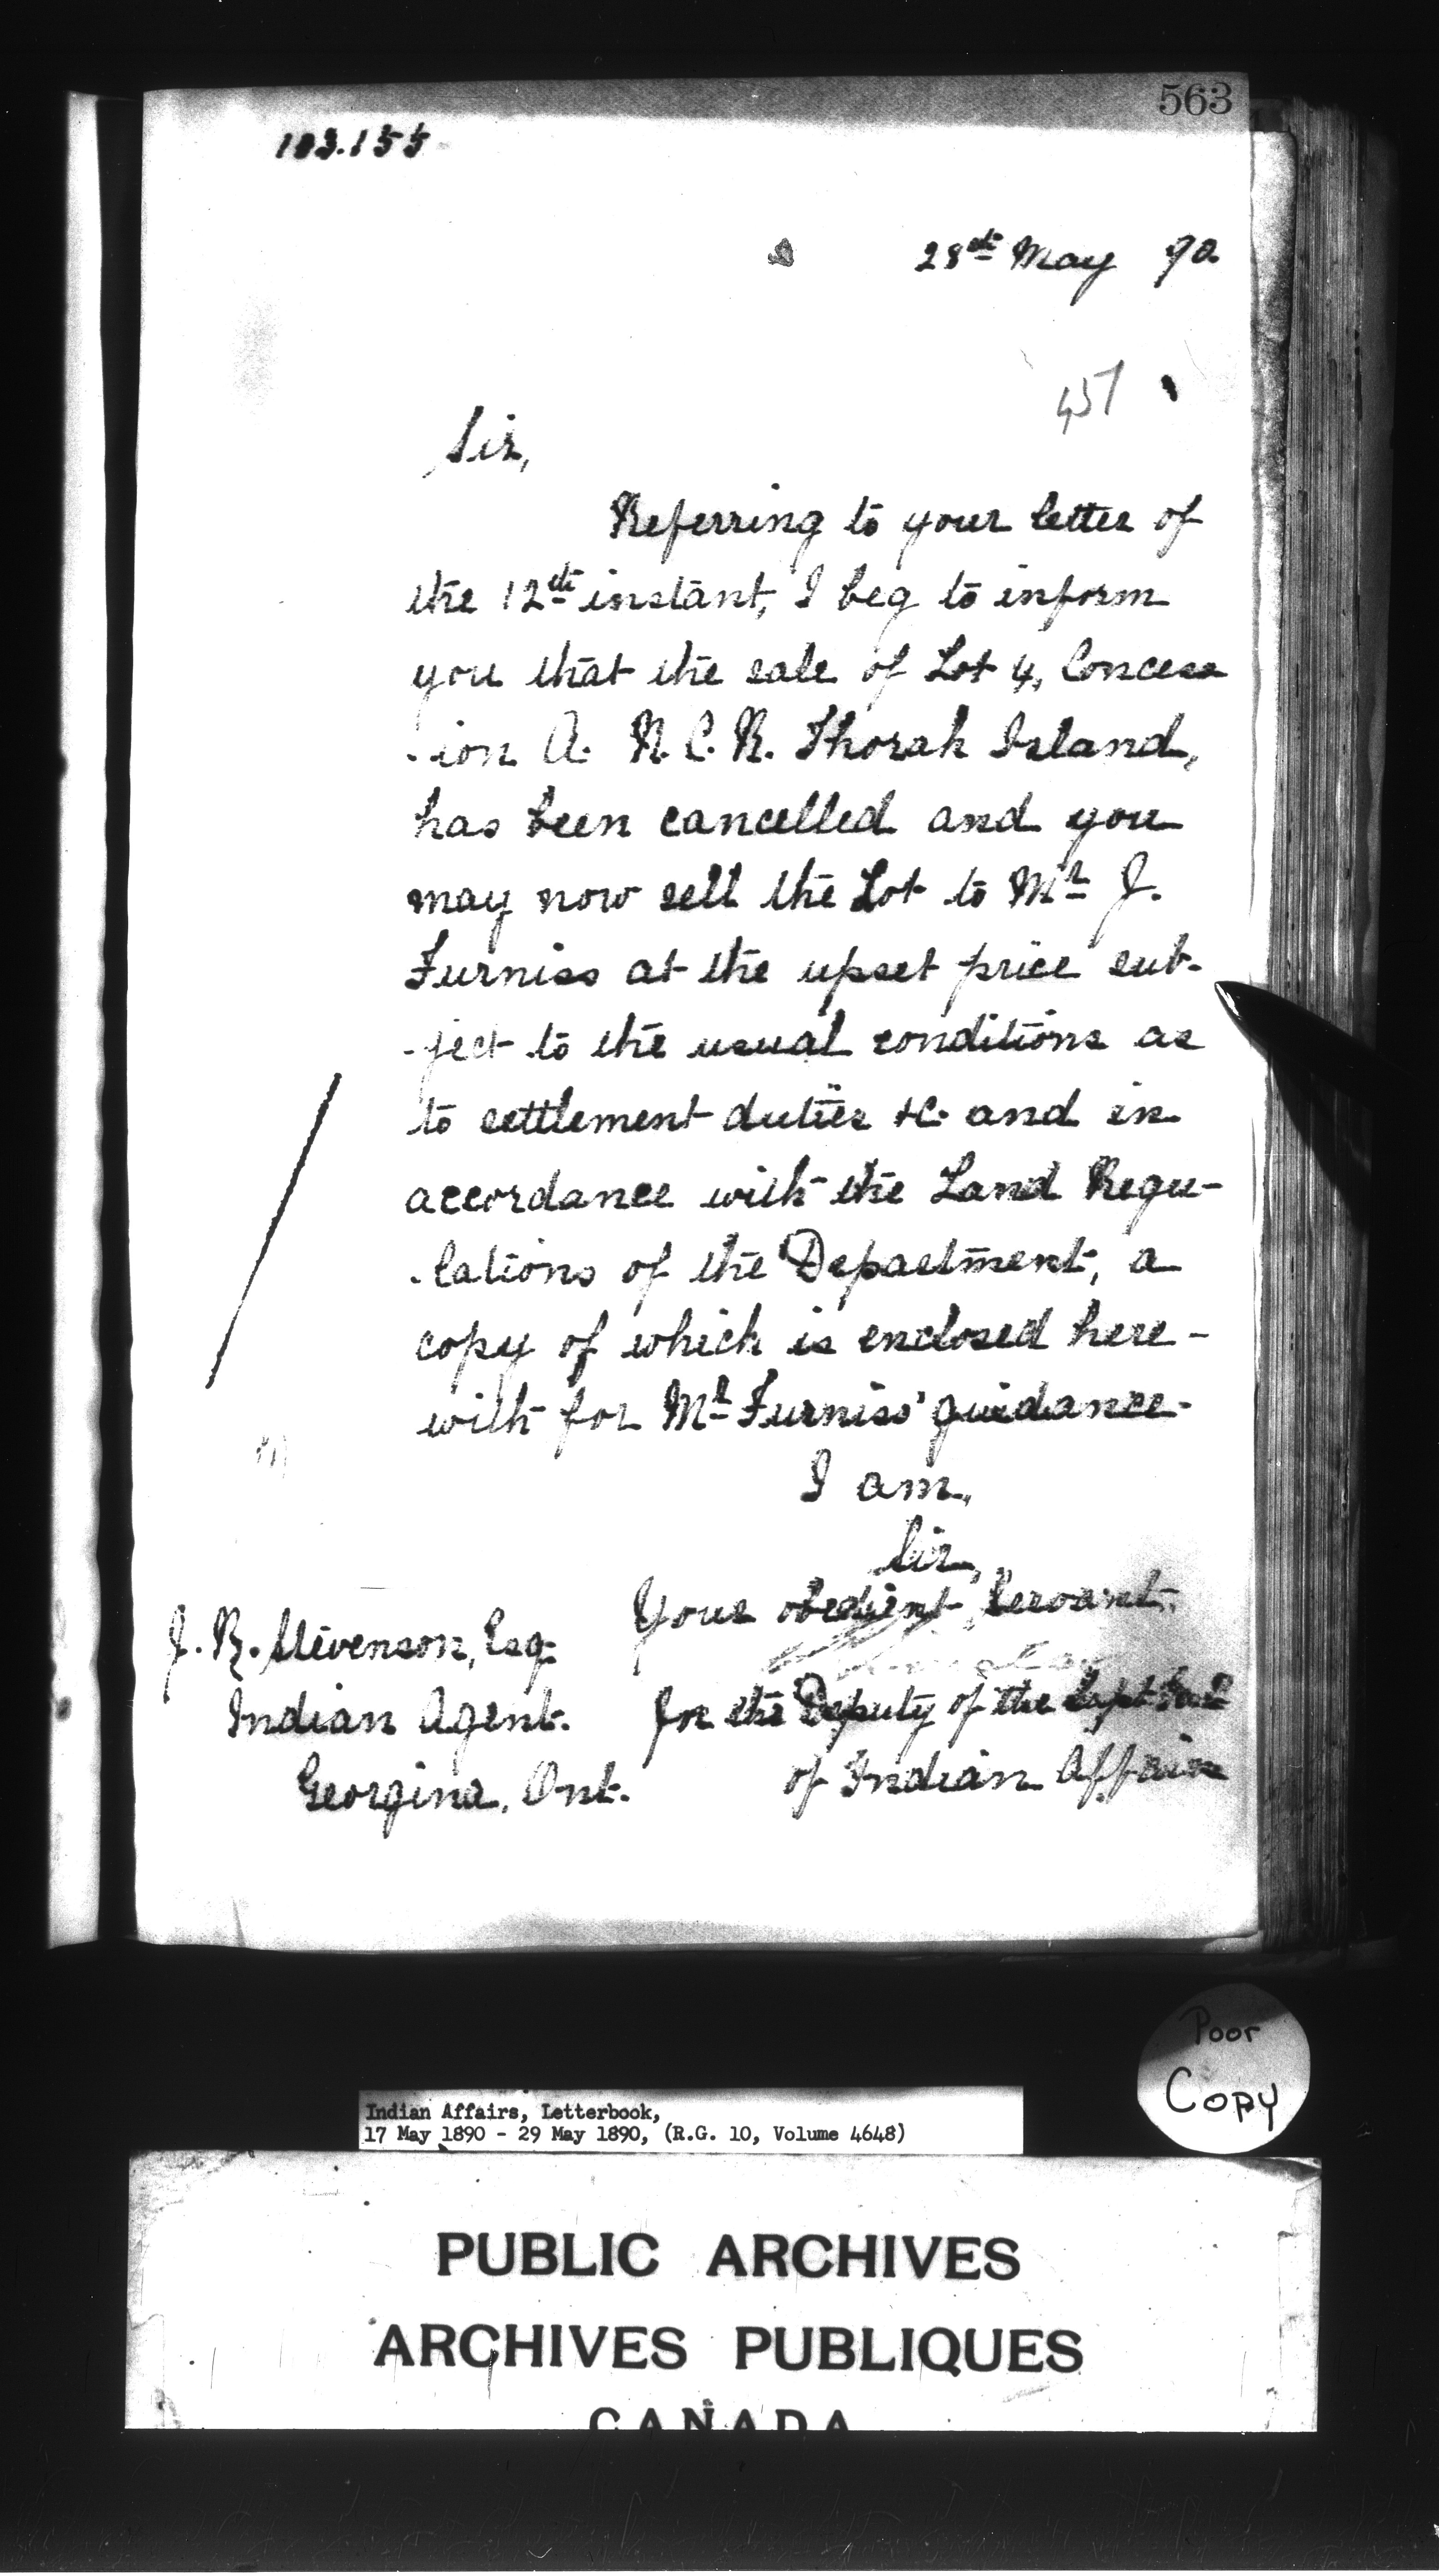 563
103.155
28th May 90
457
Sir,
Referring to your letter of
the 12th instant, I beg to inform
you that the sale of Lot 4, Concess
-ion A. N. C. R. Thorah Island,
has been cancelled and you
may now sell the Lot to Mr J.
Furniss at the upset price sub-
-ject to the usual conditions as
to settlement duties &c. and in
accordance with the Land Regu-
-lations of the Department, a
copy of which is enclosed here-
with for Mr Furniss' guidance.
I am,
Sir,
Your obedient Servant,
J. R. Stevenson, Esq.
Indian Agent.
Georgina, Ont.
For the Deputy of the Supt Genl
of Indian Affairs
Poor
Copy
Indian Affairs, Letterbook,
17 May 1890 - 29 May 1890, (R.G. 10, Volume 4648)
PUBLIC ARCHIVES
ARCHIVES PUBLIQUES
CANADA